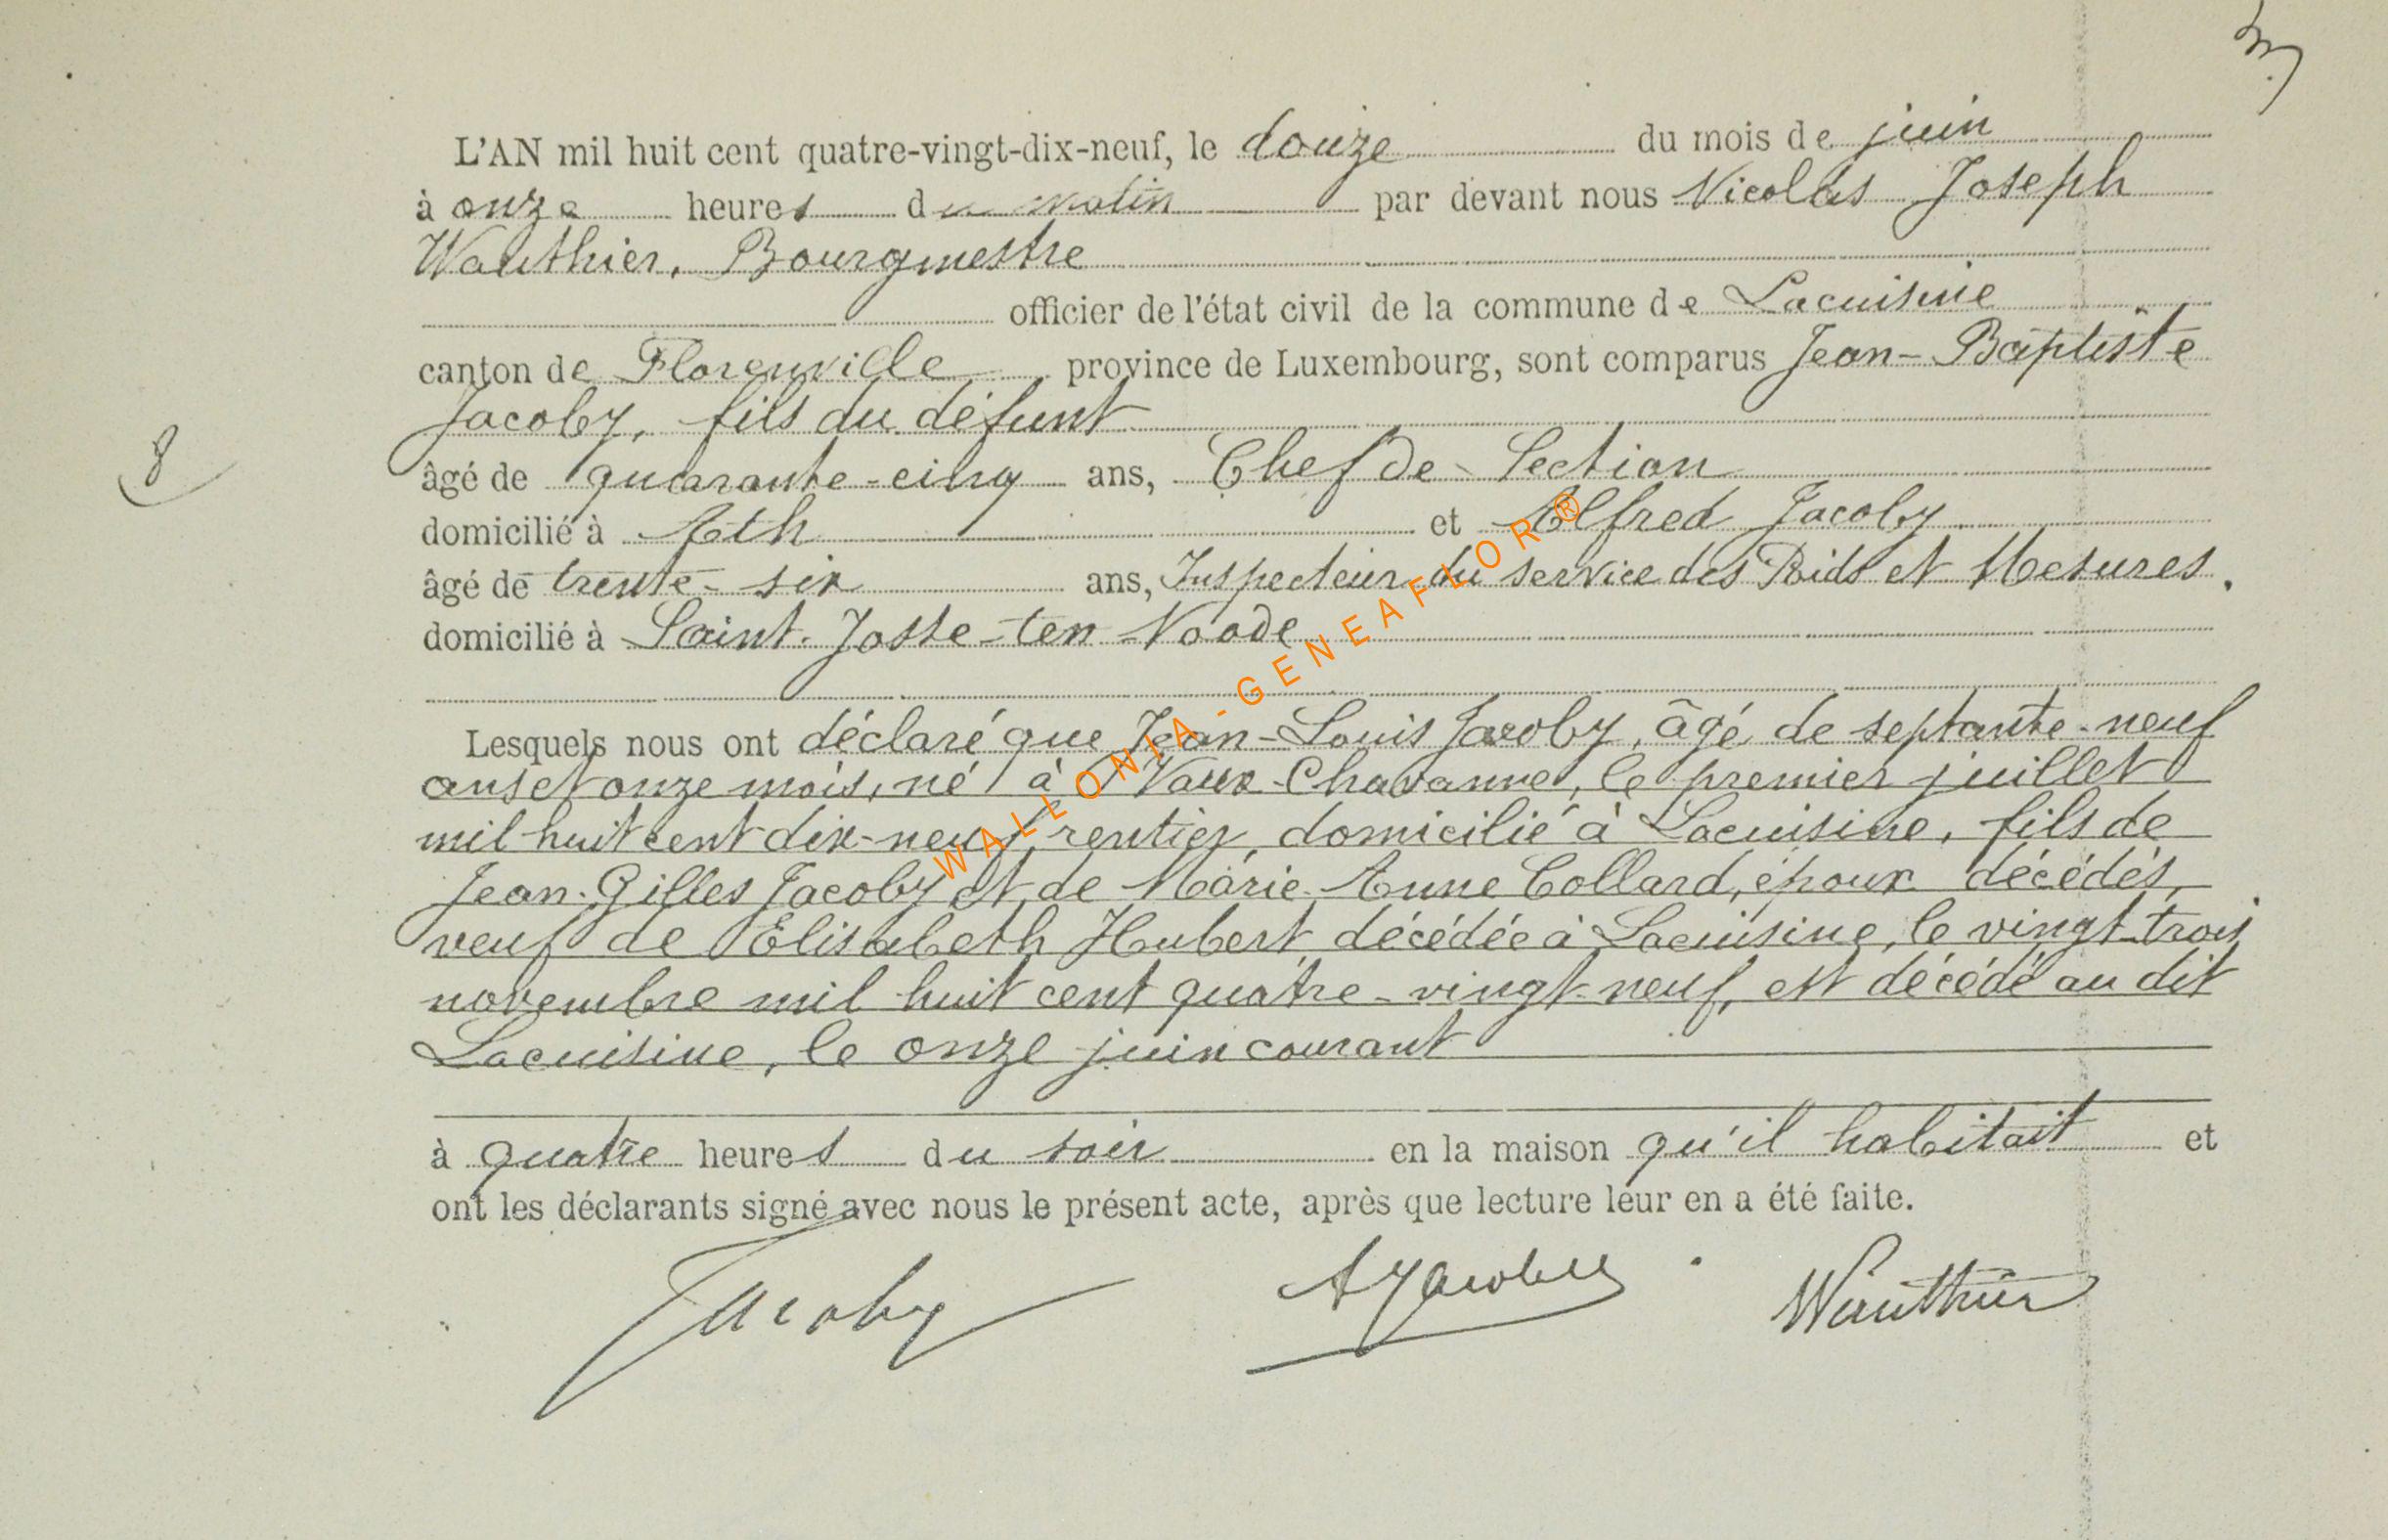 3
L'AN mil huit cent quatre-vingt-dix-neuf, le douze du mois de juin
à onze heures du matin par devant nous Nicolas Joseph
Wauthier, Bourgmestre
officier de l'état civil de la commune de Lacuisine
canton de Florenville province de Luxembourg, sont comparus Jean-Baptiste
Jacoby, fils du défunt
8
âgé de quarante-cinq ans, Chef de Section
domicilié à Ath et Alfred Jacoby
âgé de trente-six ans, Inspecteur du service des Poids et Mesures,
domicilié à Saint-Josse-ten-Noode
Lesquels nous ont déclaré que Jean-Louis Jacoby, âgé de septante-neuf
ans et onze mois, né à Vaux-Chavanne, le premier juillet
mil huit cent dix-neuf, rentier, domicilié à Lacuisine, fils de
Jean-Gilles Jacoby et de Marie-Anne Collard, époux décédés,
veuf de Elisabeth Hubert, décédée à Lacuisine, le vingt-trois
novembre mil huit cent quatre-vingt-neuf, est décédé au dit
Lacuisine, le onze juin courant
à quatre heures du soir en la maison qu'il habitait et
ont les déclarants signé avec nous le présent acte, après que lecture leur en a été faite.
Jacoby A Jacoby Wauthier
WALLONIA-GENEAFLOR®